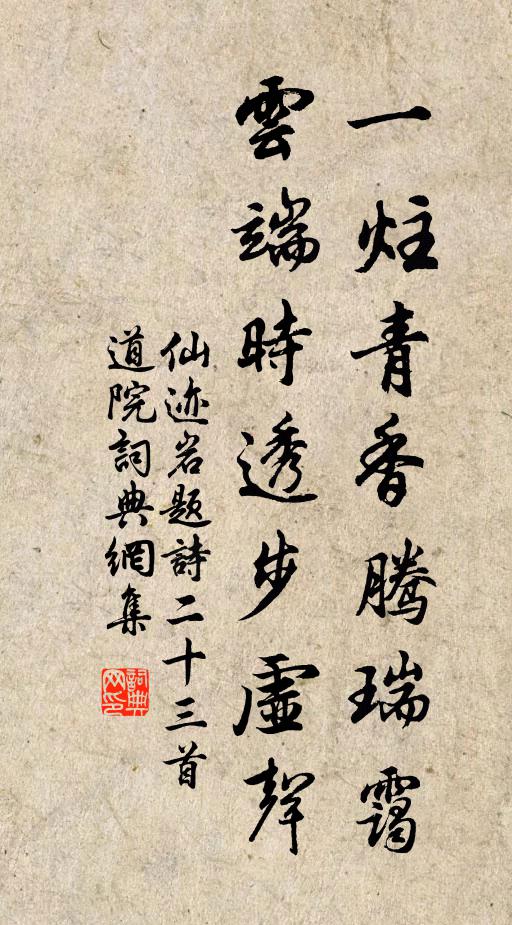 一炷青香腾瑞靄
雲端時透步虛聲
仙迹岩题詩二十三首
道院詞典網集
詞典网印